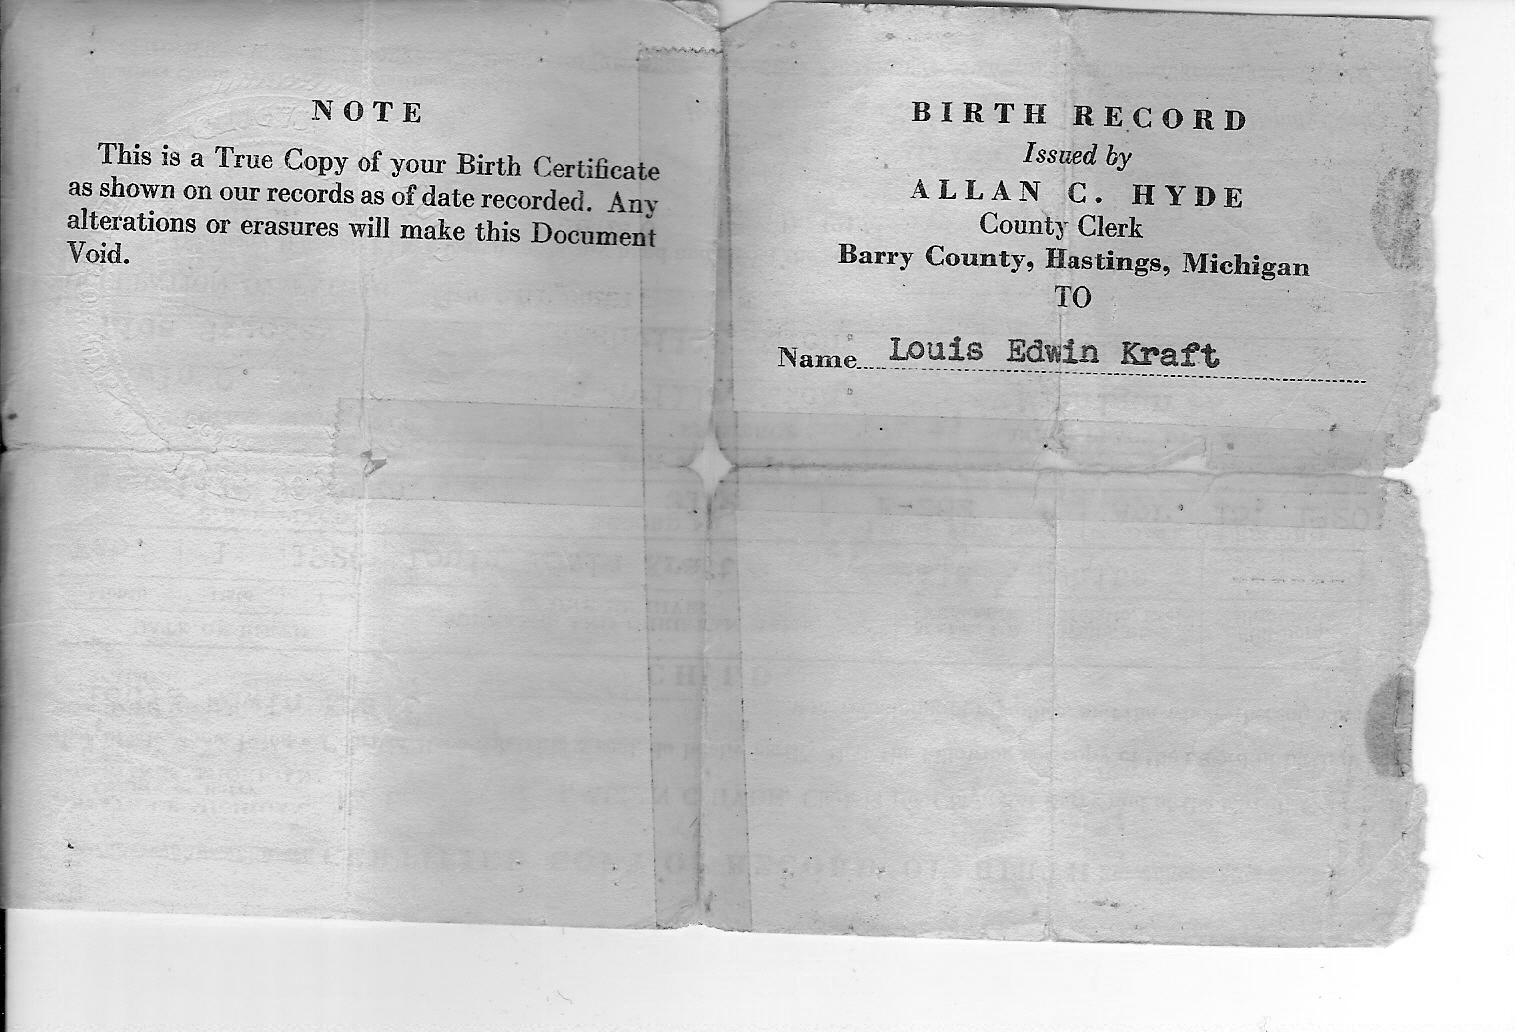 NOTE
This is a True Copy of your Birth Certificate
as shown on our records as of date recorded. Any
alterations or erasures will make this Document
Void.
BIRTH RECORD
Issued by
ALLAN C. HYDE
County Clerk
Barry County, Hastings, Michigan
TO
Name Louis Edwin Kraft